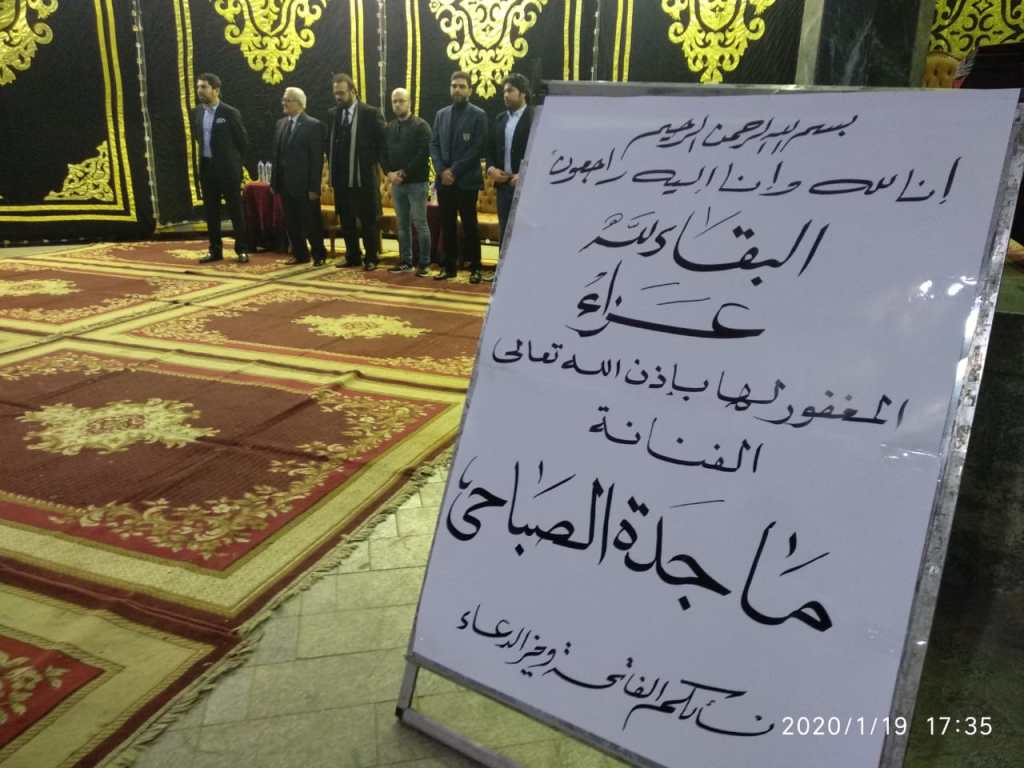 بسم الله الرحمن الرحيم
إنا لله وإنا إليه راجعون
البقاء لله
عزاء
المغفور لها بإذن الله تعالى
الفنانة
ماجدة الصباحى
نسألكم الفاتحة وخير الدعاء
2020/1/19 17:35